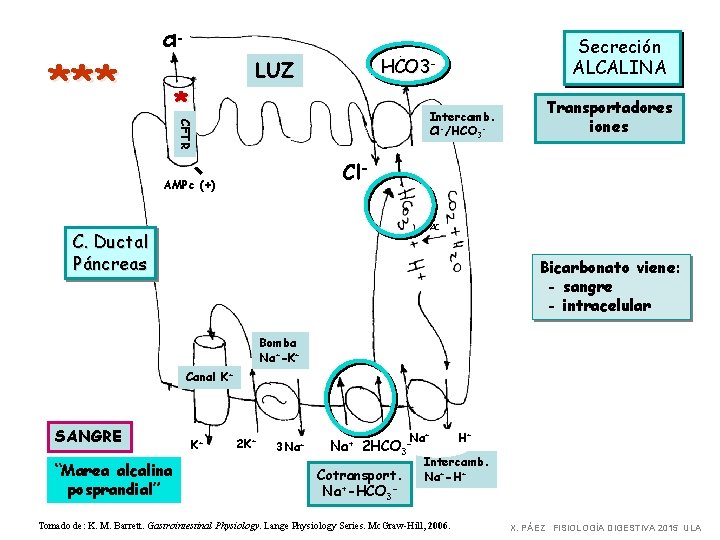 Cl-
***
LUZ
HCO3-
Secreción
ALCALINA
*
CFTR
Intercamb.
Cl-/HCO3-
Transportadores
iones
AMPc (+)
Cl-
HCO3- + H+
AC
CO2 + H2O
C. Ductal
Páncreas
Bicarbonato viene:
- sangre
- intracelular
Bomba
Na+-K+
Canal K+
SANGRE
K+
2K+
3Na+
Na+ 2HCO3-
Na+
H+
"Marea alcalina
posprandial"
Cotransport.
Na+-HCO3-
Intercamb.
Na+-H+
Tomado de: K. M. Barrett. Gastrointestinal Physiology. Lange Physiology Series. McGraw-Hill, 2006.
X. PÁEZ FISIOLOGÍA DIGESTIVA 2015 ULA